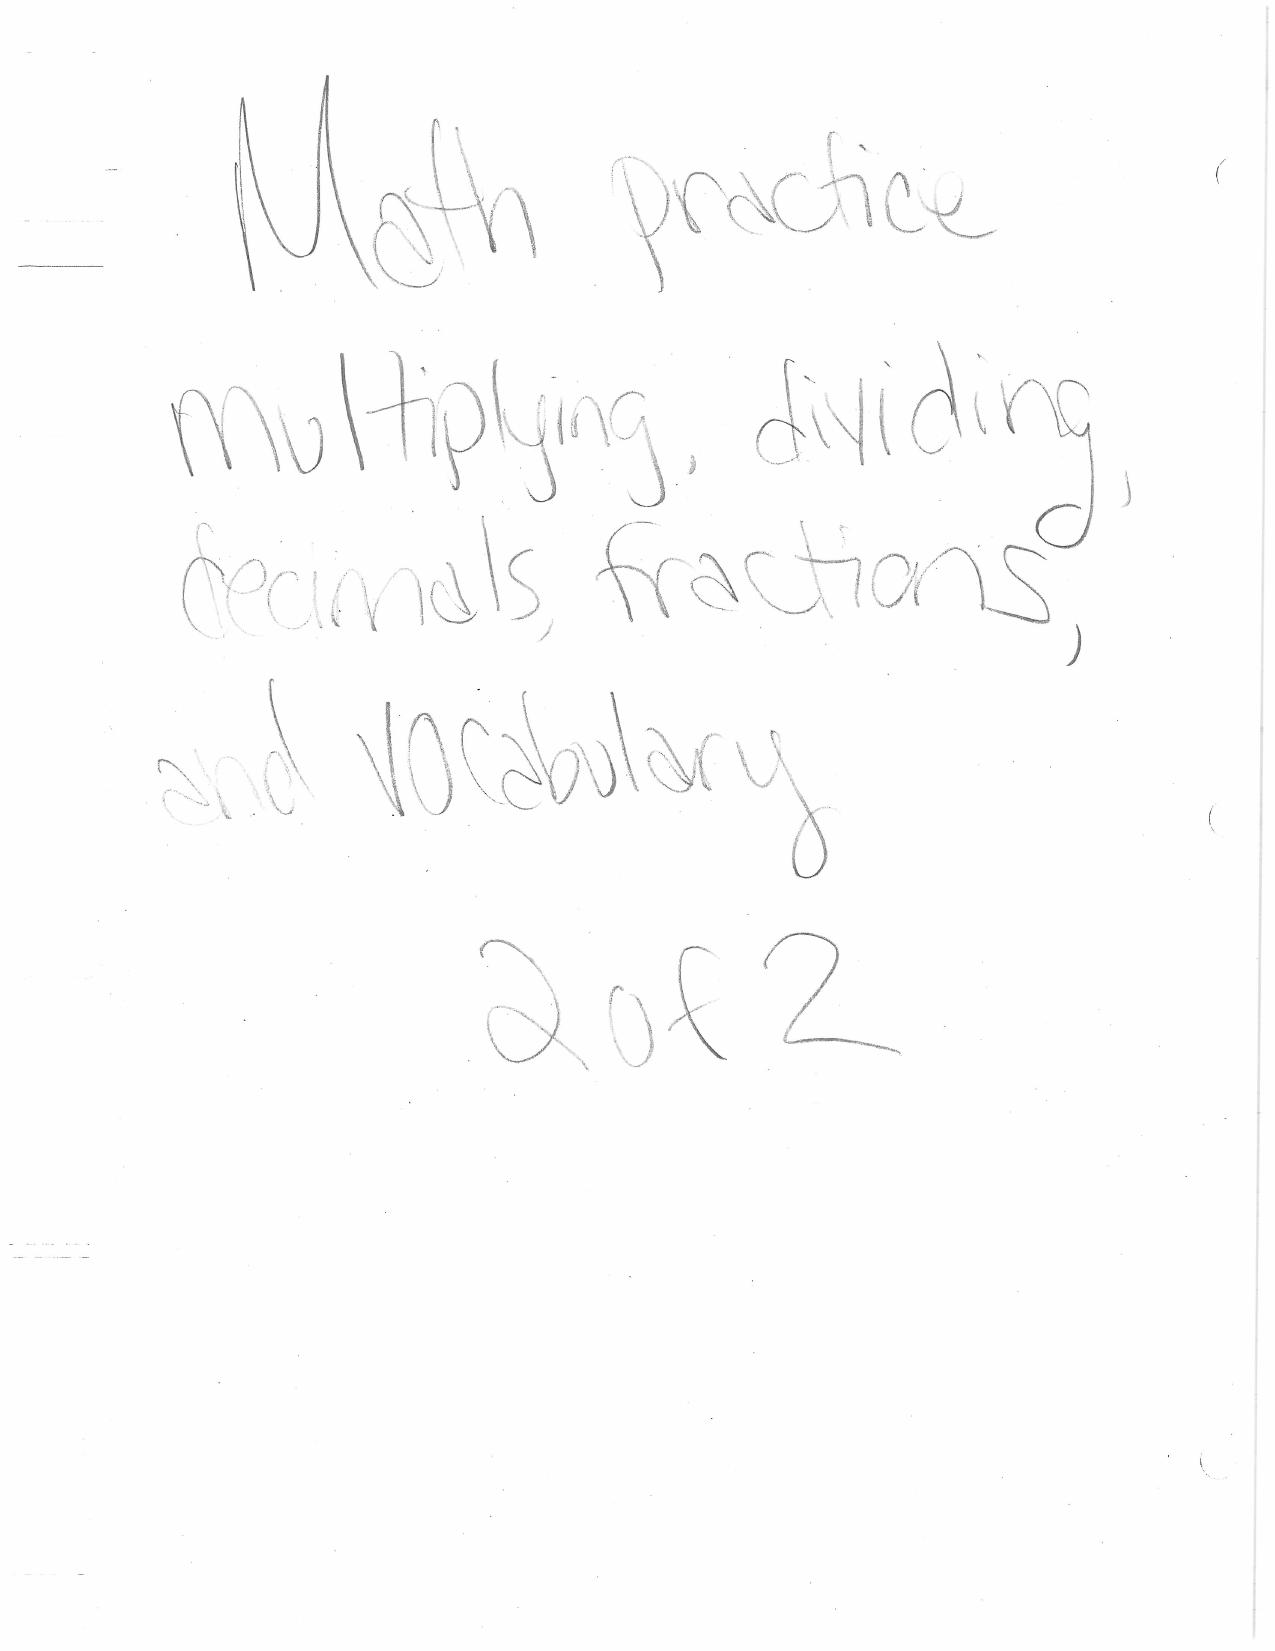 Math practice
multiplying, dividing,
decimals, fractions,
and vocabulary
2 of 2